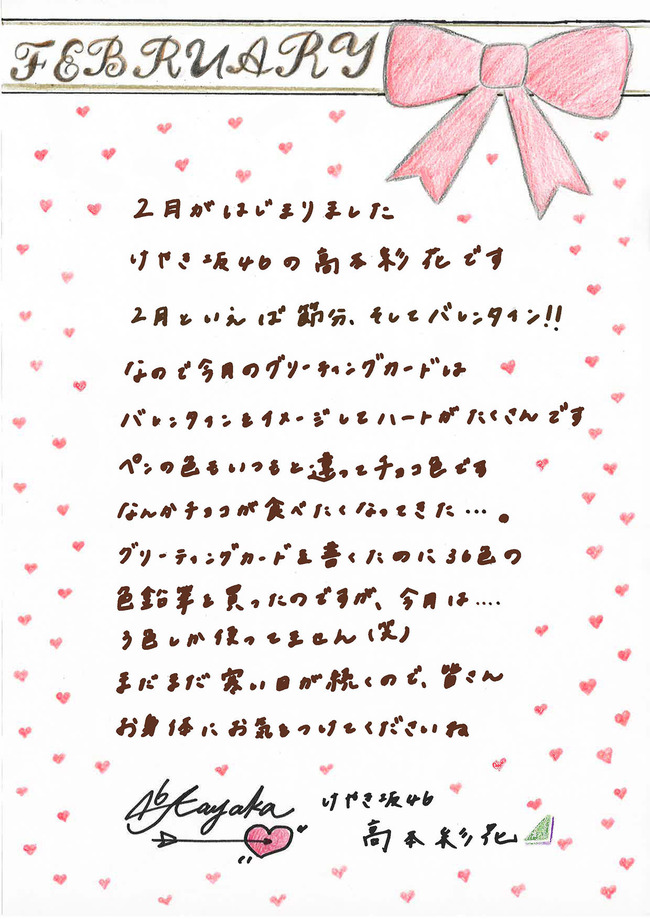 FEBRUARY
2月がはじまりました
けやき坂46の高本彩花です
2月といえば節分、そしてバレンタイン!!
なので今月のグリーティングカードは
バレンタインをイメージしてハートがたくさんです
ペンの色もいつもと違ってチョコ色です
なんかチョコが食べたくなってきた…。
グリーティングカードを書くために36色の
色鉛筆を買ったのですが、今月は....
3色しか使ってません(笑)
まだまだ寒い日が続くので、皆さん
お身体にお気をつけてくださいね
46 Ayaka
けやき坂46
高本彩花